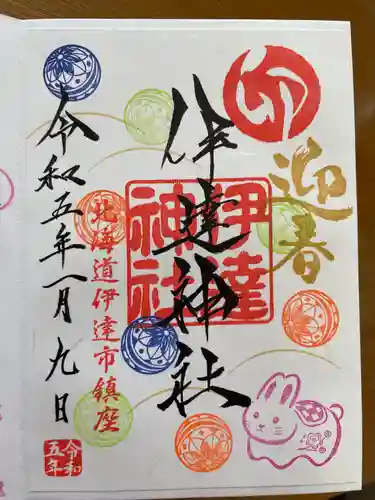 卯
迎春
伊達神社
伊達神社
北海道伊達市鎮座
令和五年一月九日
令和五年